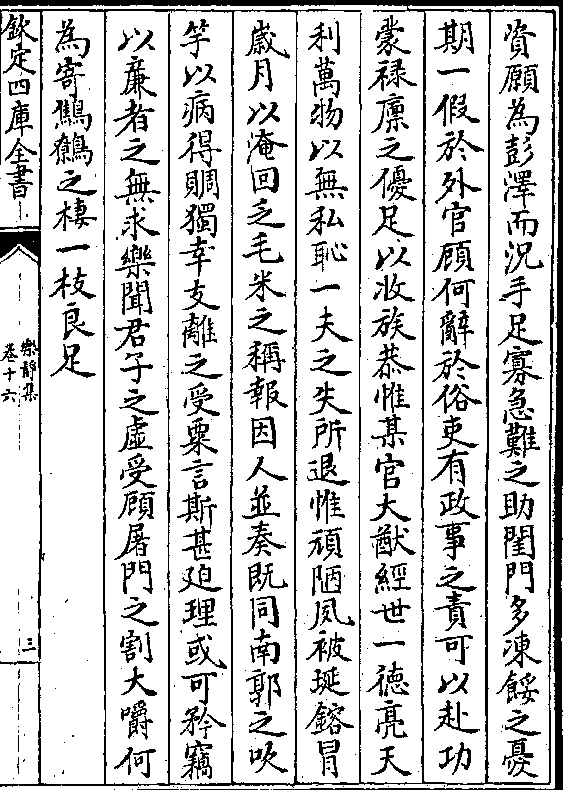 資願為彭澤而況手足寡急難之助閨門多凍餒之憂
期一假於外官顧何辭於俗吏有政事之責可以赴功
蒙祿廩之優足以收族恭惟某官大猷經世一德亮天
利萬物以無私恥一夫之失所退惟頑陋夙被埏鎔冒
歲月以淹回乏毛米之稱報因人並奏既同南郭之吹
竽以病得賙獨幸支離之受粟言斯甚廹理或可矜竊
以廉者之無求樂聞君子之虛受顧屠門之割大嚼何
為寄鷦鷯之棲一枝良足
欽定四庫全書
樂靜集
卷十六
三